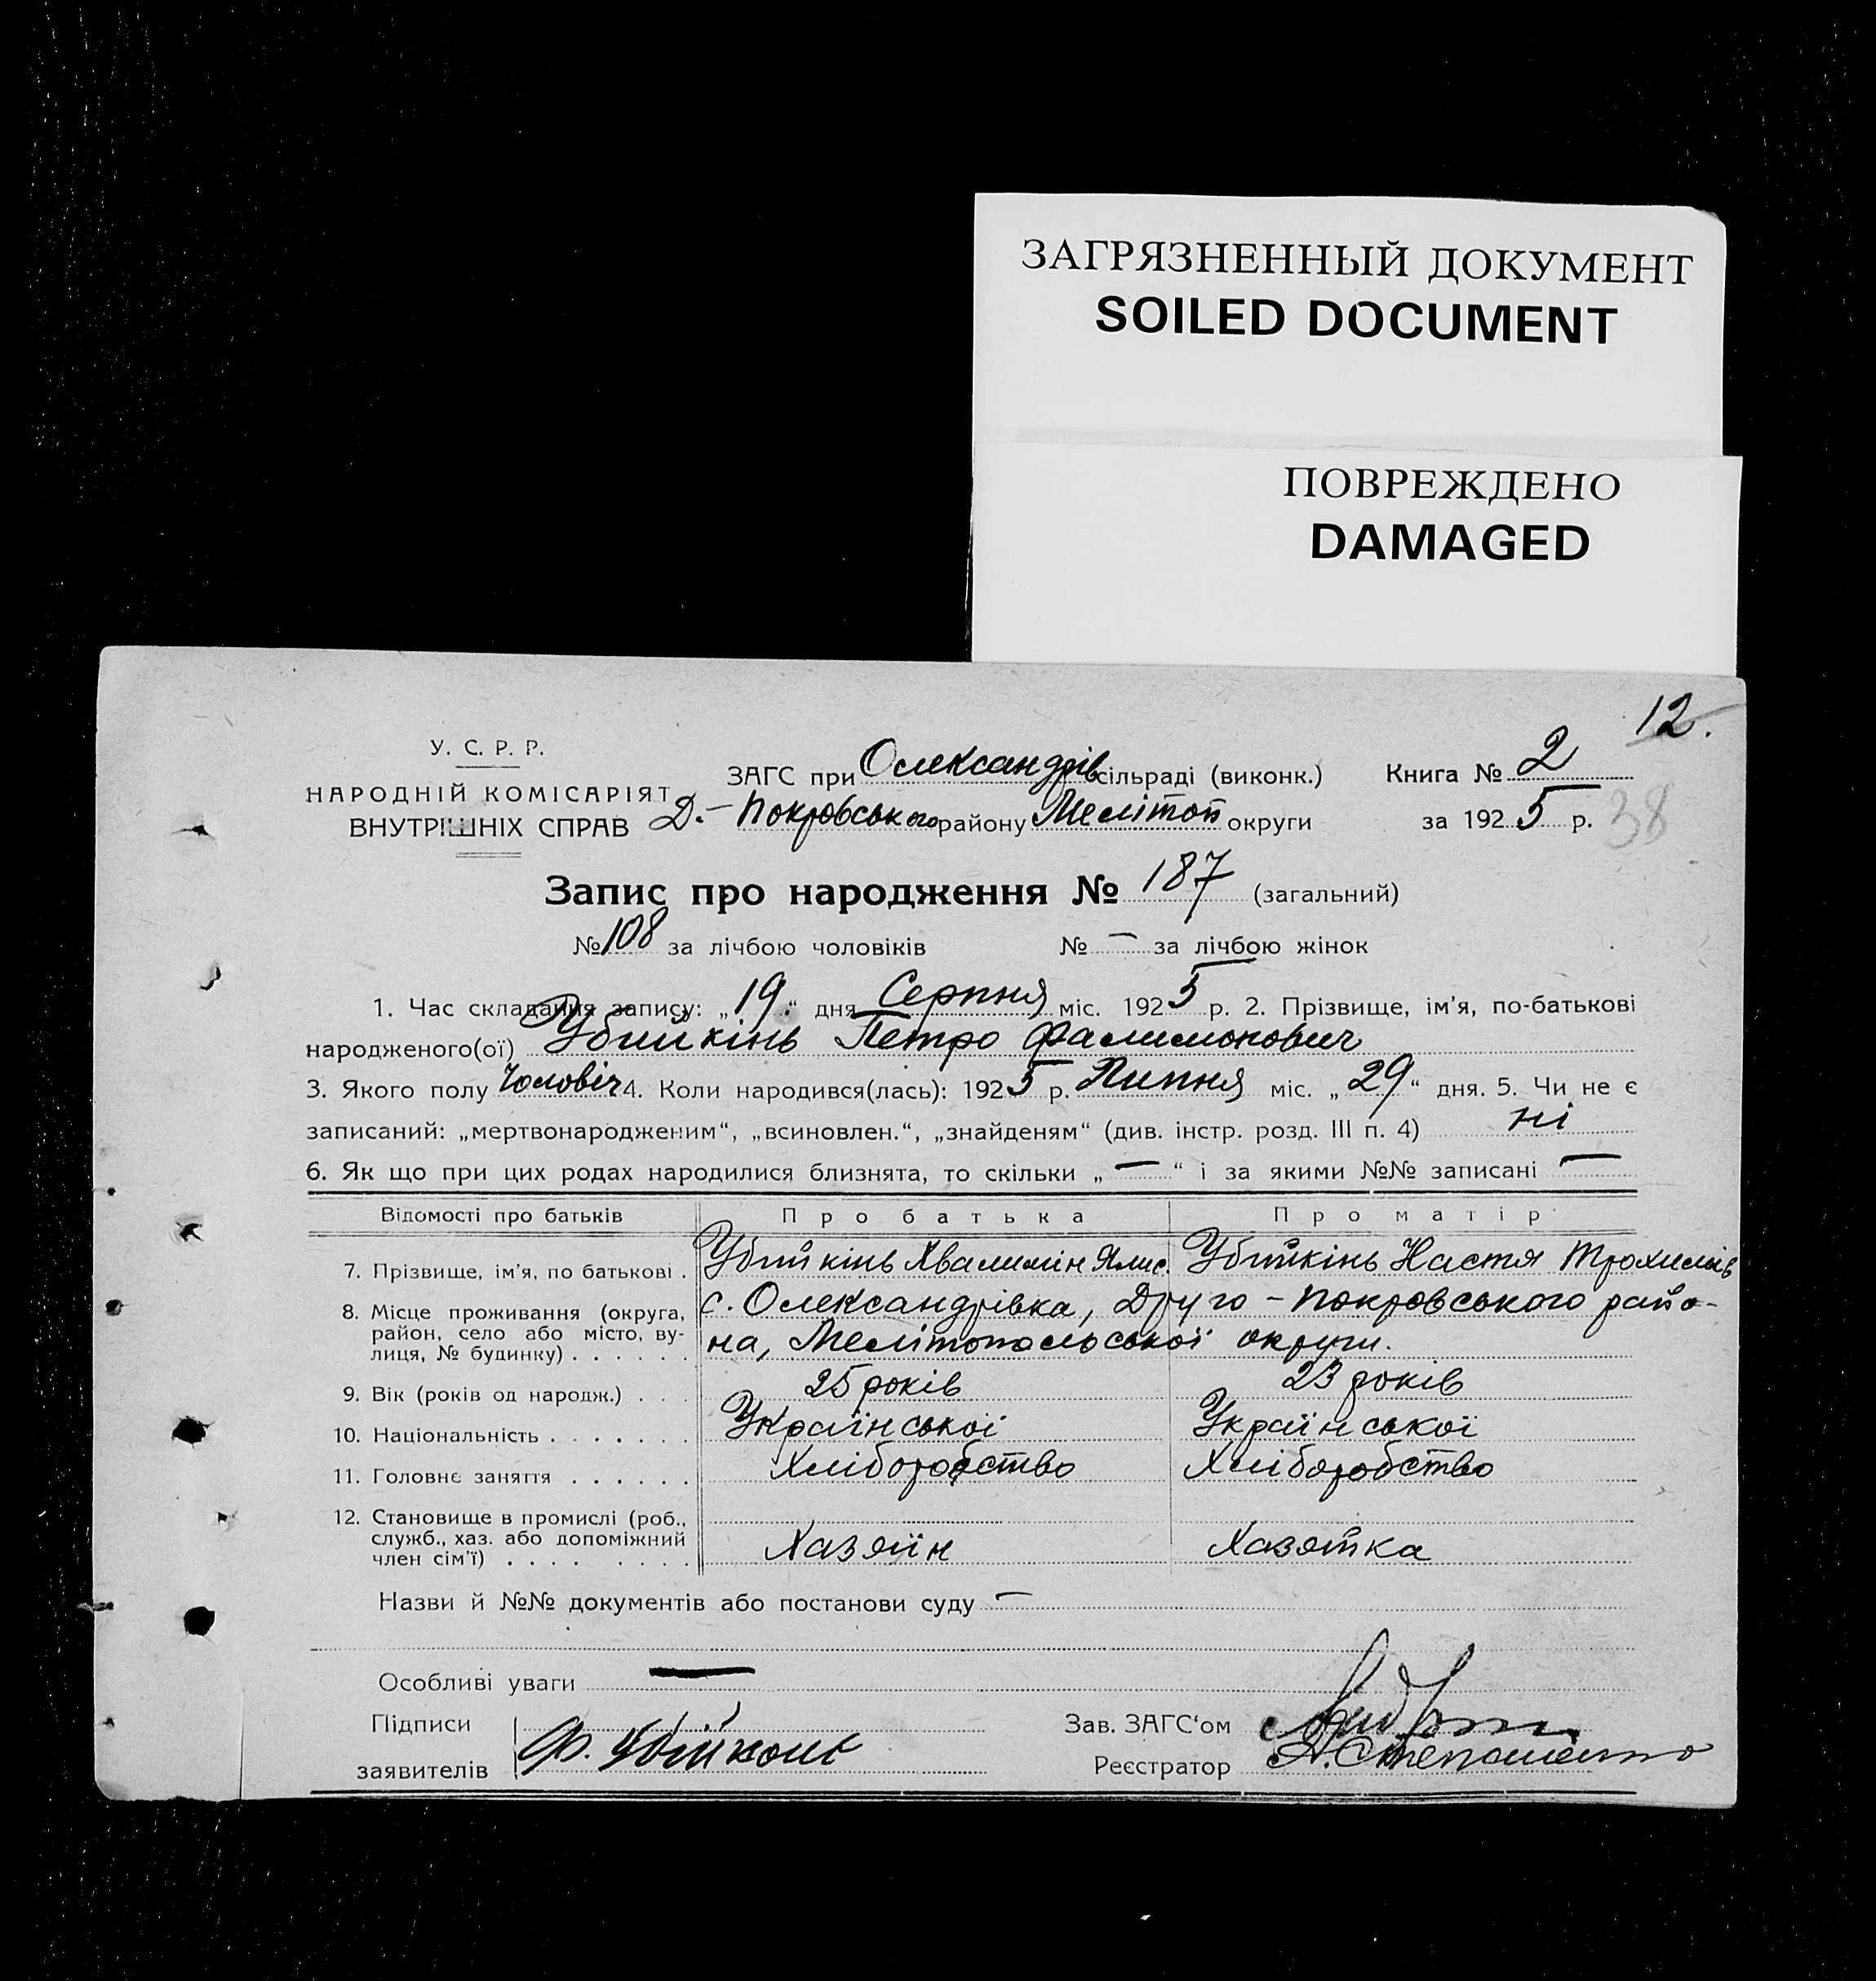 ЗАГРЯЗНЕННЫЙ ДОКУМЕНТ
SOILED DOCUMENT
ПОВРЕЖДЕНО
DAMAGED
12.
У. С. Р. Р.
НАРОДНІЙ КОМІСАРІЯТ
ВНУТРІШНІХ СПРАВ
ЗАГС при Олександрів сільраді (виконк.) Книга № 2
Д.-Покровського району Мелітоп округи за 1925 р. 38
Запис про народження № 187 (загальний)
№ 108 за лічбою чоловіків № — за лічбою жінок
1. Час складання запису: „19“ дня Серпня міс. 1925 р. 2. Прізвище, ім’я, по-батькові
народженого(ої) Убийкінь Петро Фалимонович
3. Якого полу Чоловіч 4. Коли народився(лась): 1925 р. Липня міс. „29“ дня. 5. Чи не є
записаний: „мертвонародженим“, „всиновлен.“, „знайденям“ (див. інстр. розд. III п. 4) ні
6. Як що при цих родах народилися близнята, то скільки „—“ і за якими №№ записані —
Відомості про батьків Про батька Про матір
7. Прізвище, ім’я, по батькові . Убийкінь Хвалимін Убийкінь Настя Трохимів
8. Місце проживання (округа, с. Олександрівка, Друго-Покровського райо-
район, село або місто, ву-
лиця, № будинку) . . . . . . на, Мелітопольської округи.
9. Вік (років од народж.) . . . 25 років 23 років
10. Національність . . . . . . . Української Української
11. Головнє заняття . . . . . . Хліборобство Хліборобство
12. Становище в промислі (роб.,
служб., хаз. або допоміжний
член сім’ї) . . . . . . . . . Хазяїн Хазяйка
Назви й №№ документів або постанови суду —
Особливі уваги —
Підписи Зав. ЗАГС‘ом
заявителів Ф. Убийконь Реєстратор